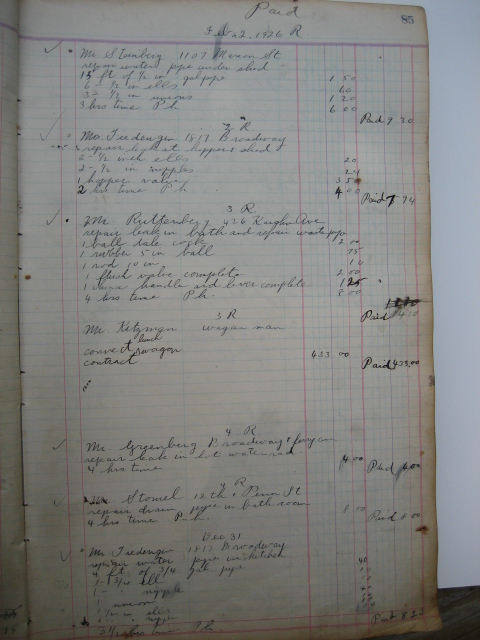 Paid
85
Feb 2, 1926 R
Mr. Steinberg 1107 Marion St
repair water pipe under shed
15 ft of 1/2 in gal pipe 1 50
6 - 1/2 in ells 60
3 - 1/2 in unions 1 20
3 hrs time P.h. 6 00
Paid 9 30
R
Mr. Fredengen 1817 Broadway
repair leak at hopper shed
2 - 1/2 inch ells 20
2 - 1/2 in nipples 24
1 hopper valve 3 50
2 hrs time P.h. 4 00
Paid 7 94
3 R
Mr. Ruttenberg 426 Kaighn Ave
repair leak in bath and repair waste pipe
1 ball cock 2 00
1 rubber 5 in ball 75
1 rod 10 in 10
1 flush valve complete 2 00
1 handle and lever complete 1 25
4 hrs time P.h. 8 00
Paid 14 10
3 R
Mr. Ketzman wagon man
convert wagon
contract 433 00
Paid 433,00
4 R
Mr. Greenberg Broadway &
repair leak in hot water
4 hrs time 4 00
Paid 4.00
R
Mr. Stomel 12th & Penn St
repair drain pipe in bath room
4 hrs time P.h. 8 00
Paid 8 00
Dec 31
Mr. Fredengen 1817 Broadway
repair water pipe in kitchen
4 ft of 3/4 gal pipe 40
1 - 3/4 ell
1 - nipple
1 union
1/2 in ells
nipple
hrs time P.h.
Paid 8 23